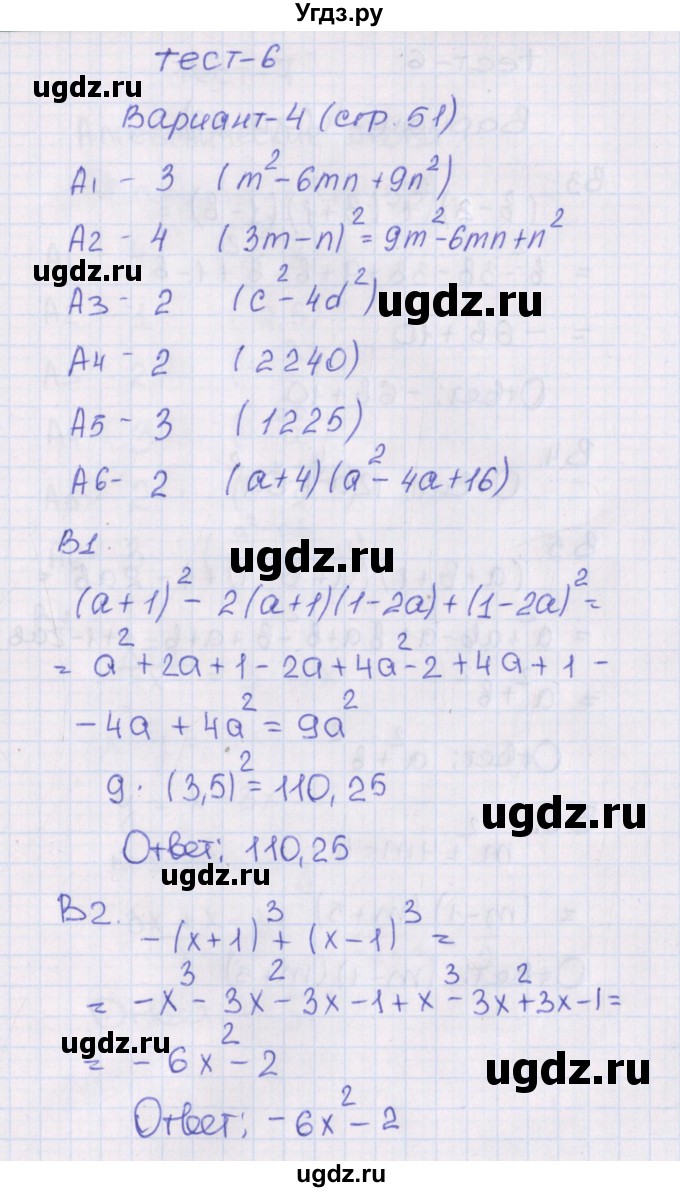 Угдз.ру
тест-6
ugdz.ru
Вариант-4 (стр. 51)
A1 - 3 (m² - 6mn + 9n²)
A2 - 4 (3m - n)² = 9m² - 6mn + n²
ugdz.ru
A3 - 2 (c² - 4d²)
ugdz.ru
A4 - 2 (2240)
A5 - 3 (1225)
A6 - 2 (a+4)(a² - 4a + 16)
B1
ugdz.ru
(a+1)² - 2(a+1)(1-2a) + (1-2a)² =
= a² + 2a + 1 - 2a + 4a² - 2 + 4a + 1 -
- 4a + 4a² = 9a²
9 · (3,5)² = 110,25
ugdz.ru
Ответ: 110,25
ugdz.ru
B2.
-(x+1)³ + (x-1)³ =
= -x³ - 3x² - 3x - 1 + x³ - 3x² + 3x - 1 =
ugdz.ru
= - 6x² - 2
ugdz.ru
Ответ: -6x² - 2
ugdz.ru